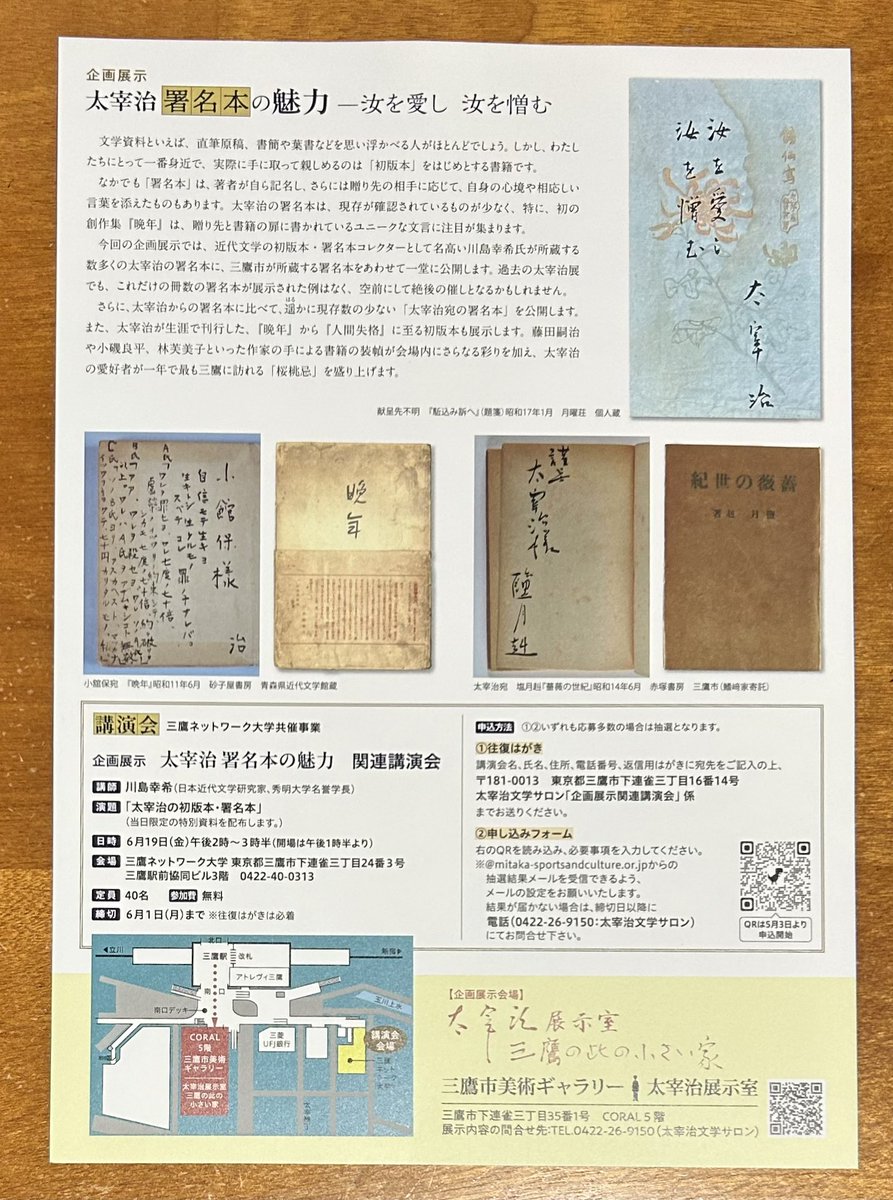 企画展示
太宰治 署名本の魅力 ―汝を愛し 汝を憎む
文学資料といえば、直筆原稿、書簡や葉書などを思い浮かべる人がほとんどでしょう。しかし、わたし
たちにとって一番身近で、実際に手に取って親しめるのは「初版本」をはじめとする書籍です。
なかでも「署名本」は、著者が自ら記名し、さらには贈り先の相手に応じて、自身の心境や相応しい
言葉を添えたものもあります。太宰治の署名本は、現存が確認されているものが少なく、特に、初の
創作集『晩年』は、贈り先と書籍の扉に書かれているユニークな文言に注目が集まります。
今回の企画展示では、近代文学の初版本・署名本コレクターとして名高い川島幸希氏が所蔵する
数多くの太宰治の署名本に、三鷹市が所蔵する署名本をあわせて一堂に公開します。過去の太宰治展
でも、これだけの冊数の署名本が展示された例はなく、空前にして絶後の催しとなるかもしれません。
さらに、太宰治からの署名本に比べて、遥かに現存数の少ない「太宰治宛の署名本」を公開します。
はる
また、太宰治が生涯で刊行した、『晩年』から『人間失格』に至る初版本も展示します。藤田嗣治
や小磯良平、林芙美子といった作家の手による書籍の装幀が会場内にさらなる彩りを加え、太宰治
の愛好者が一年で最も三鷹に訪れる「桜桃忌」を盛り上げます。
汝を愛し
汝を憎む
太宰治
献呈先不明 『駈込み訴へ』(題箋)昭和17年1月 月曜荘 個人蔵
小館保様
治
自信モテ生キヨ
生キトシ生クルモノ
スベテ コレ
罪ノ子ナレバ。
晩年
謹呈
太宰治様
鹽月赳
薔薇の世紀
鹽月赳著
小舘保宛 『晩年』昭和11年6月 砂子屋書房 青森県近代文学館蔵
太宰治宛 塩月赳『薔薇の世紀』昭和14年6月 赤塚書房 三鷹市(鰭﨑家寄託)
講演会 三鷹ネットワーク大学共催事業
企画展示 太宰治 署名本の魅力 関連講演会
講師 川島幸希(日本近代文学研究家、秀明大学名誉学長)
演題 「太宰治の初版本・署名本」
(当日限定の特別資料を配布します。)
日時 6月19日(金)午後2時~3時半(開場は午後1時半より)
会場 三鷹ネットワーク大学 東京都三鷹市下連雀三丁目24番3号
三鷹駅前協同ビル3階 0422-40-0313
定員 40名 参加費 無料
締切 6月1日(月)まで ※往復はがきは必着
申込方法 ①②いずれも応募多数の場合は抽選となります。
①往復はがき
講演会名、氏名、住所、電話番号、返信用はがきに宛先をご記入の上、
〒181-0013 東京都三鷹市下連雀三丁目16番14号
太宰治文学サロン「企画展示関連講演会」係
までお送りください。
②申し込みフォーム
右のQRを読み込み、必要事項を入力してください。
※@mitaka-sportsandculture.or.jpからの
抽選結果メールを受信できるよう、
メールの設定をお願いいたします。
結果が届かない場合は、締切日以降に
電話(0422-26-9150:太宰治文学サロン)
にてお問合せ下さい。
QRは5月3日より
申込開始
立川
北口
新宿
三鷹駅
改札
アトレヴィ三鷹
南口
南口デッキ
玉川上水
CORAL
5階
三鷹市美術
ギャラリー
太宰治展示室
三鷹の此の
小さい家
三菱
UFJ銀行
講演会
会場
【企画展示会場】
太宰治展示室
三鷹の此の小さい家
三鷹市美術ギャラリー 太宰治展示室
三鷹市下連雀三丁目35番1号 CORAL5階
展示内容の問合せ先:TEL.0422-26-9150(太宰治文学サロン)